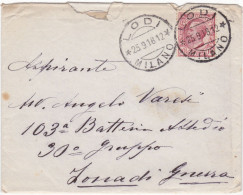 LODI
*25.9.16.12*
MILANO
LODI
MILANO
Aspirante
Sig. Angelo Varesi
103ª Batteria Assedio
30º Gruppo
Zona di Guerra